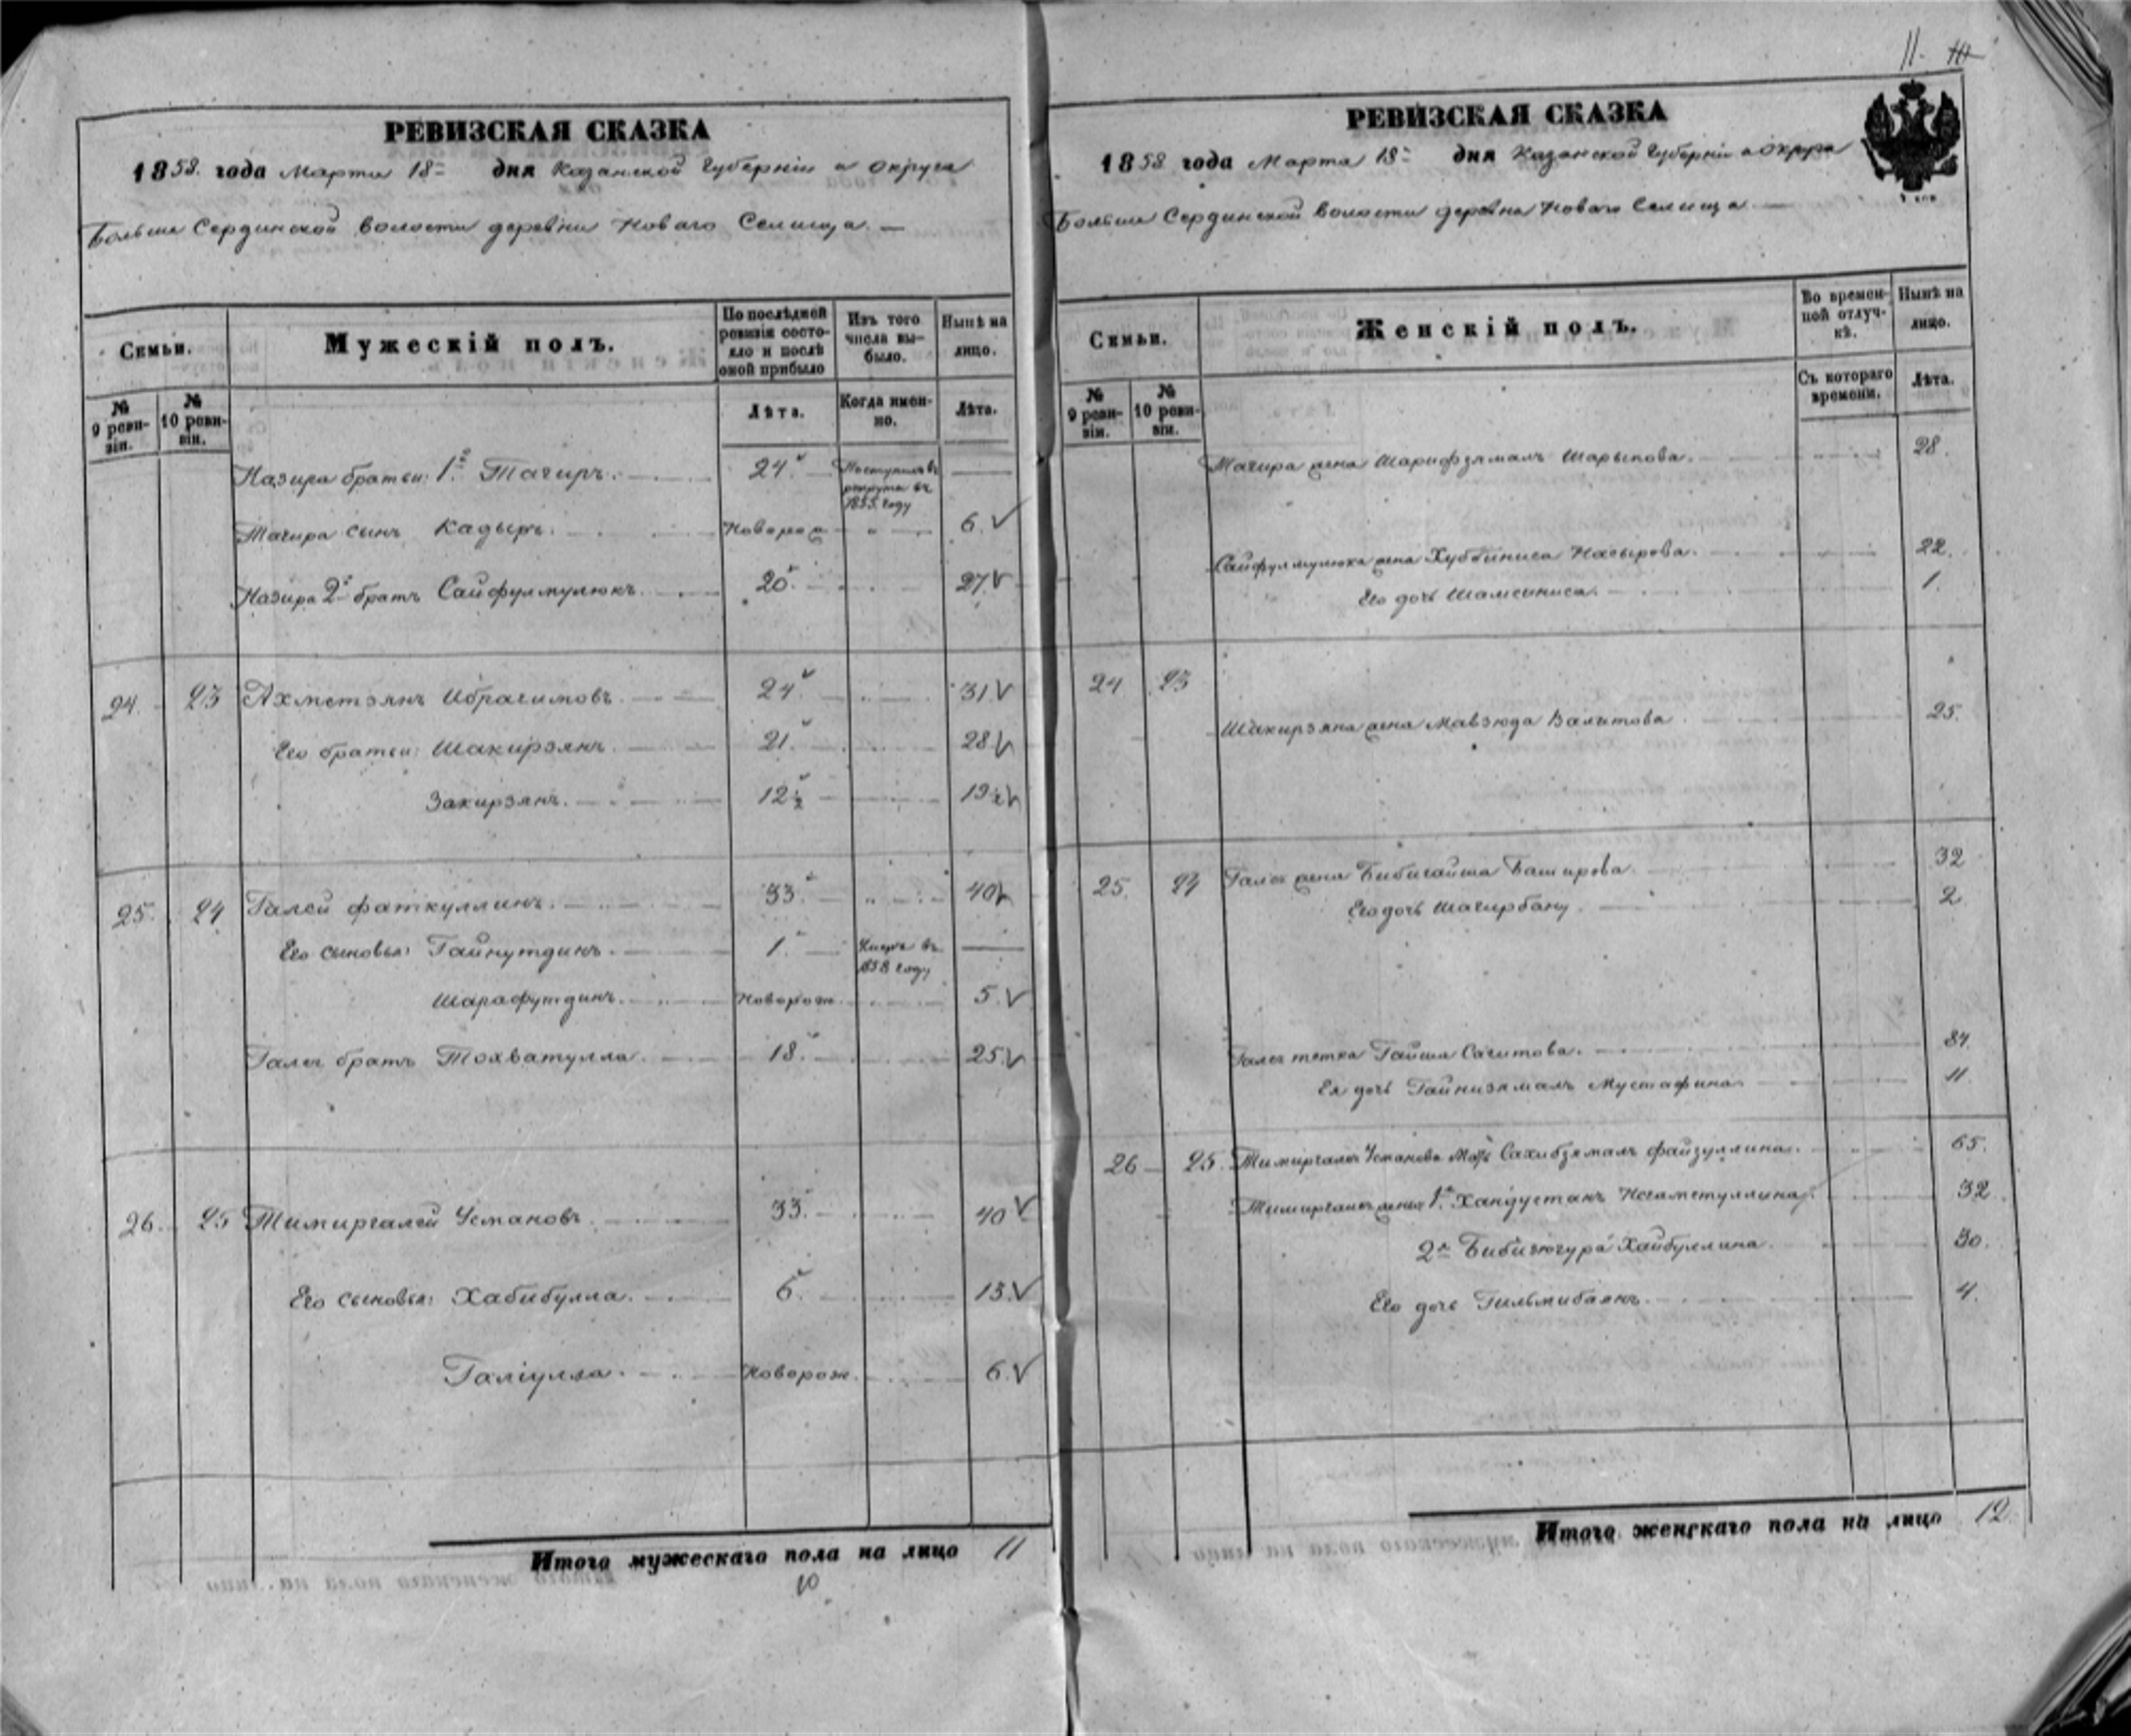 11. 10
РЕВИЗСКАЯ СКАЗКА
1858. года Марта 18 дня Казанской Губерніи и округа
Больше Сердинской волости деревни Новаго Селища.
Семьи.
Мужескій полъ.
По послѣдней ревизіи состояло и послѣ оной прибыло
Изъ того числа выбыло.
Нынѣ на лицо.
№ 9 ревизіи.
№ 10 ревизіи.
Лѣта.
Когда именно.
Лѣта.
Назира братья: 1й Тагиръ. 24. Поступилъ въ рекруты въ 1855. году
Тагира сынъ Кадыръ. Новорож 6.
Назира 2й братъ Сайфулмулюкъ. 20. 27.
24. 23 Ахметзянъ Ибрагимовъ. 24. 31
Его братья: Шакирзянъ. 21. 28.
Закирзянъ. 12½ 19½
25. 24 Галей Фаткуллинъ. 33. 40
Его сыновья: Гайнутдинъ. 1. Умеръ въ 1858 году
Шарафутдинъ. Новорож. 5.
Галея братъ Тохватулла. 18. 25.
26. 25 Тимиргалей Усмановъ. 33. 40
Его сыновья: Хабибулла. 6. 13.
Галіулла. Новорож. 6.
Итого мужескаго пола на лицо 11
10
РЕВИЗСКАЯ СКАЗКА
1858 года Марта 18 дня Казанской Губерніи и округа
Больше Сердинской волости деревни Новаго Селища
Семьи.
Женскій полъ.
Во временной отлучкѣ.
Нынѣ на лицо.
№ 9 ревизіи.
№ 10 ревизіи.
Съ котораго времени.
Лѣта.
Тагира жена Шарифзямалъ Шарыпова. 28.
Сайфулмулюка жена Хуббиниса Насырова. 22.
Его дочь Шамсиниса. 1.
24 23
Шакирзяна жена Мавзюда Валитова. 25.
25. 24 Галея жена Бибигайша Баширова. 32
Его дочь Шагирбану. 2
Галея тетка Гайша Сагитова. 84.
Ея дочь Гайнизямалъ Мустафина 11.
26 25. Тимиргалея Усманова мать Сахибзямалъ Файзуллина. 65.
Тимиргалея жены 1я Хандустанъ Негаметуллина. 32
2я Бибизюгура Хайбуллина. 30.
Его дочь Гильмибаянъ. 4.
Итого женскаго пола на лицо 12.